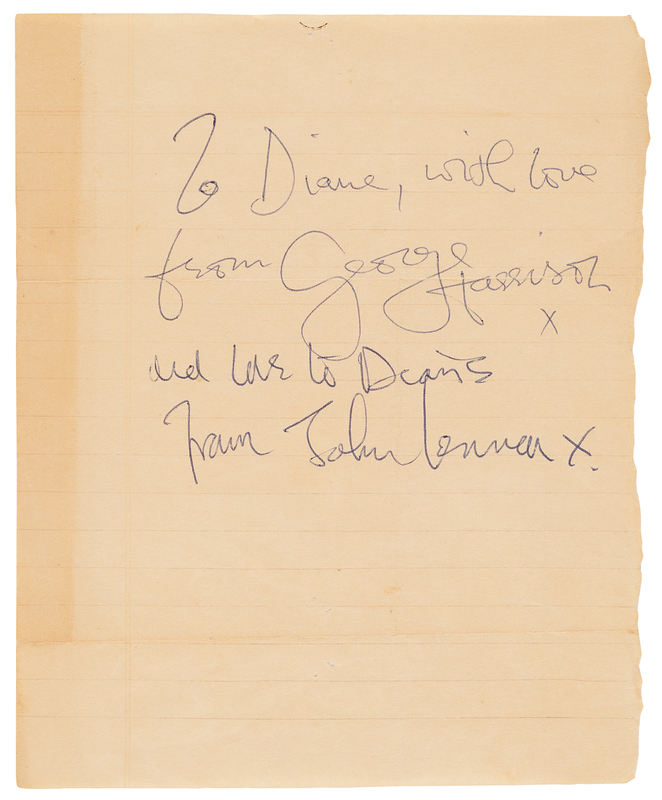 To Diane, with love
from George Harrison
x
and love to
from John Lennon x.